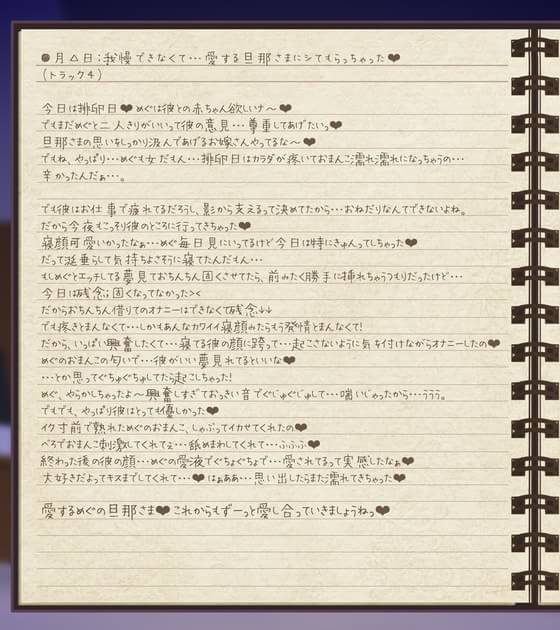 ●月△日：我慢できなくて…愛する旦那さまにシてもらっちゃった♥
(トラック４)
今日は排卵日♥めぐは彼との赤ちゃん欲しいナ～♥
でもまだめぐと二人きりがいいって彼の意見…尊重してあげたいっ♥
旦那さまの思いをしっかり汲んであげるお嫁さんやってるな～♥
でもね、やっぱり…めぐも女だもん…排卵日はカラダが疼いておまんこ濡れ濡れになっちゃうの…
辛かったんだぁ…。
でも彼はお仕事で疲れてるだろうし、影から支えるって決めてたから…おねだりなんてできないよね。
だから今夜もこっそり彼のところに行ってきちゃった♥
寝顔可愛いかったなぁ…めぐ毎日見にいってるけど今日は特にきゅんってしちゃった♥
だって涎垂らして気持ちよさそうに寝てたんだもん…
もしめぐとエッチしてる夢見ておちんちん固くさせてたら、前みたく勝手に挿れちゃうつもりだったけど…
今日は残念;;固くなってなかった><
だからおちんちん借りてのオナニーはできなくて残念↓↓
でも疼きとまんなくて…しかもあんなカワイイ寝顔みたらもう発情とまんなくて!
だから、いっぱい興奮したくて…寝てる彼の顔に跨って…起こさないように気を付けながらオナニーしたの♥
めぐのおまんこの匂いで…彼がいい夢見れてるといいな♥
…とか思ってぐちゅぐちゅしてたら起こしちゃった!
めぐ、やらかしちゃったよ～興奮しすぎておっきい音でぐじゅぐじゅして…喘いじゃったから…ううう。
でもでも、やっぱり彼はとっても優しかった♥
イク寸前で熟れためぐのおまんこ、しゃぶってイカせてくれたの♥
べろでおまんこ刺激してくれてぇ…舐めまわしてくれて…ふふふ♥
終わった後の彼の顔…めぐの愛液でぐちょぐちょで…愛されてるって実感したなぁ♥
大好きだよってキスまでしてくれて…♥はぁああ…思い出したらまた濡れてきちゃった♥
愛するめぐの旦那さま♥これからもずーっと愛し合っていきましょうねっ♥